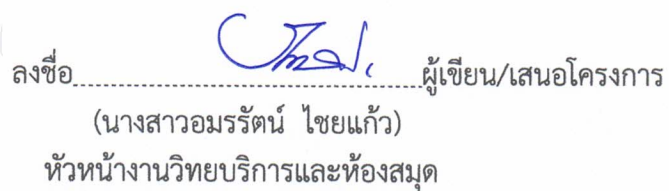 ลงชื่อ........................................................ผู้เขียน/เสนอโครงการ
(นางสาวอมรรัตน์ ไชยแก้ว)
หัวหน้างานวิทยบริการและห้องสมุด